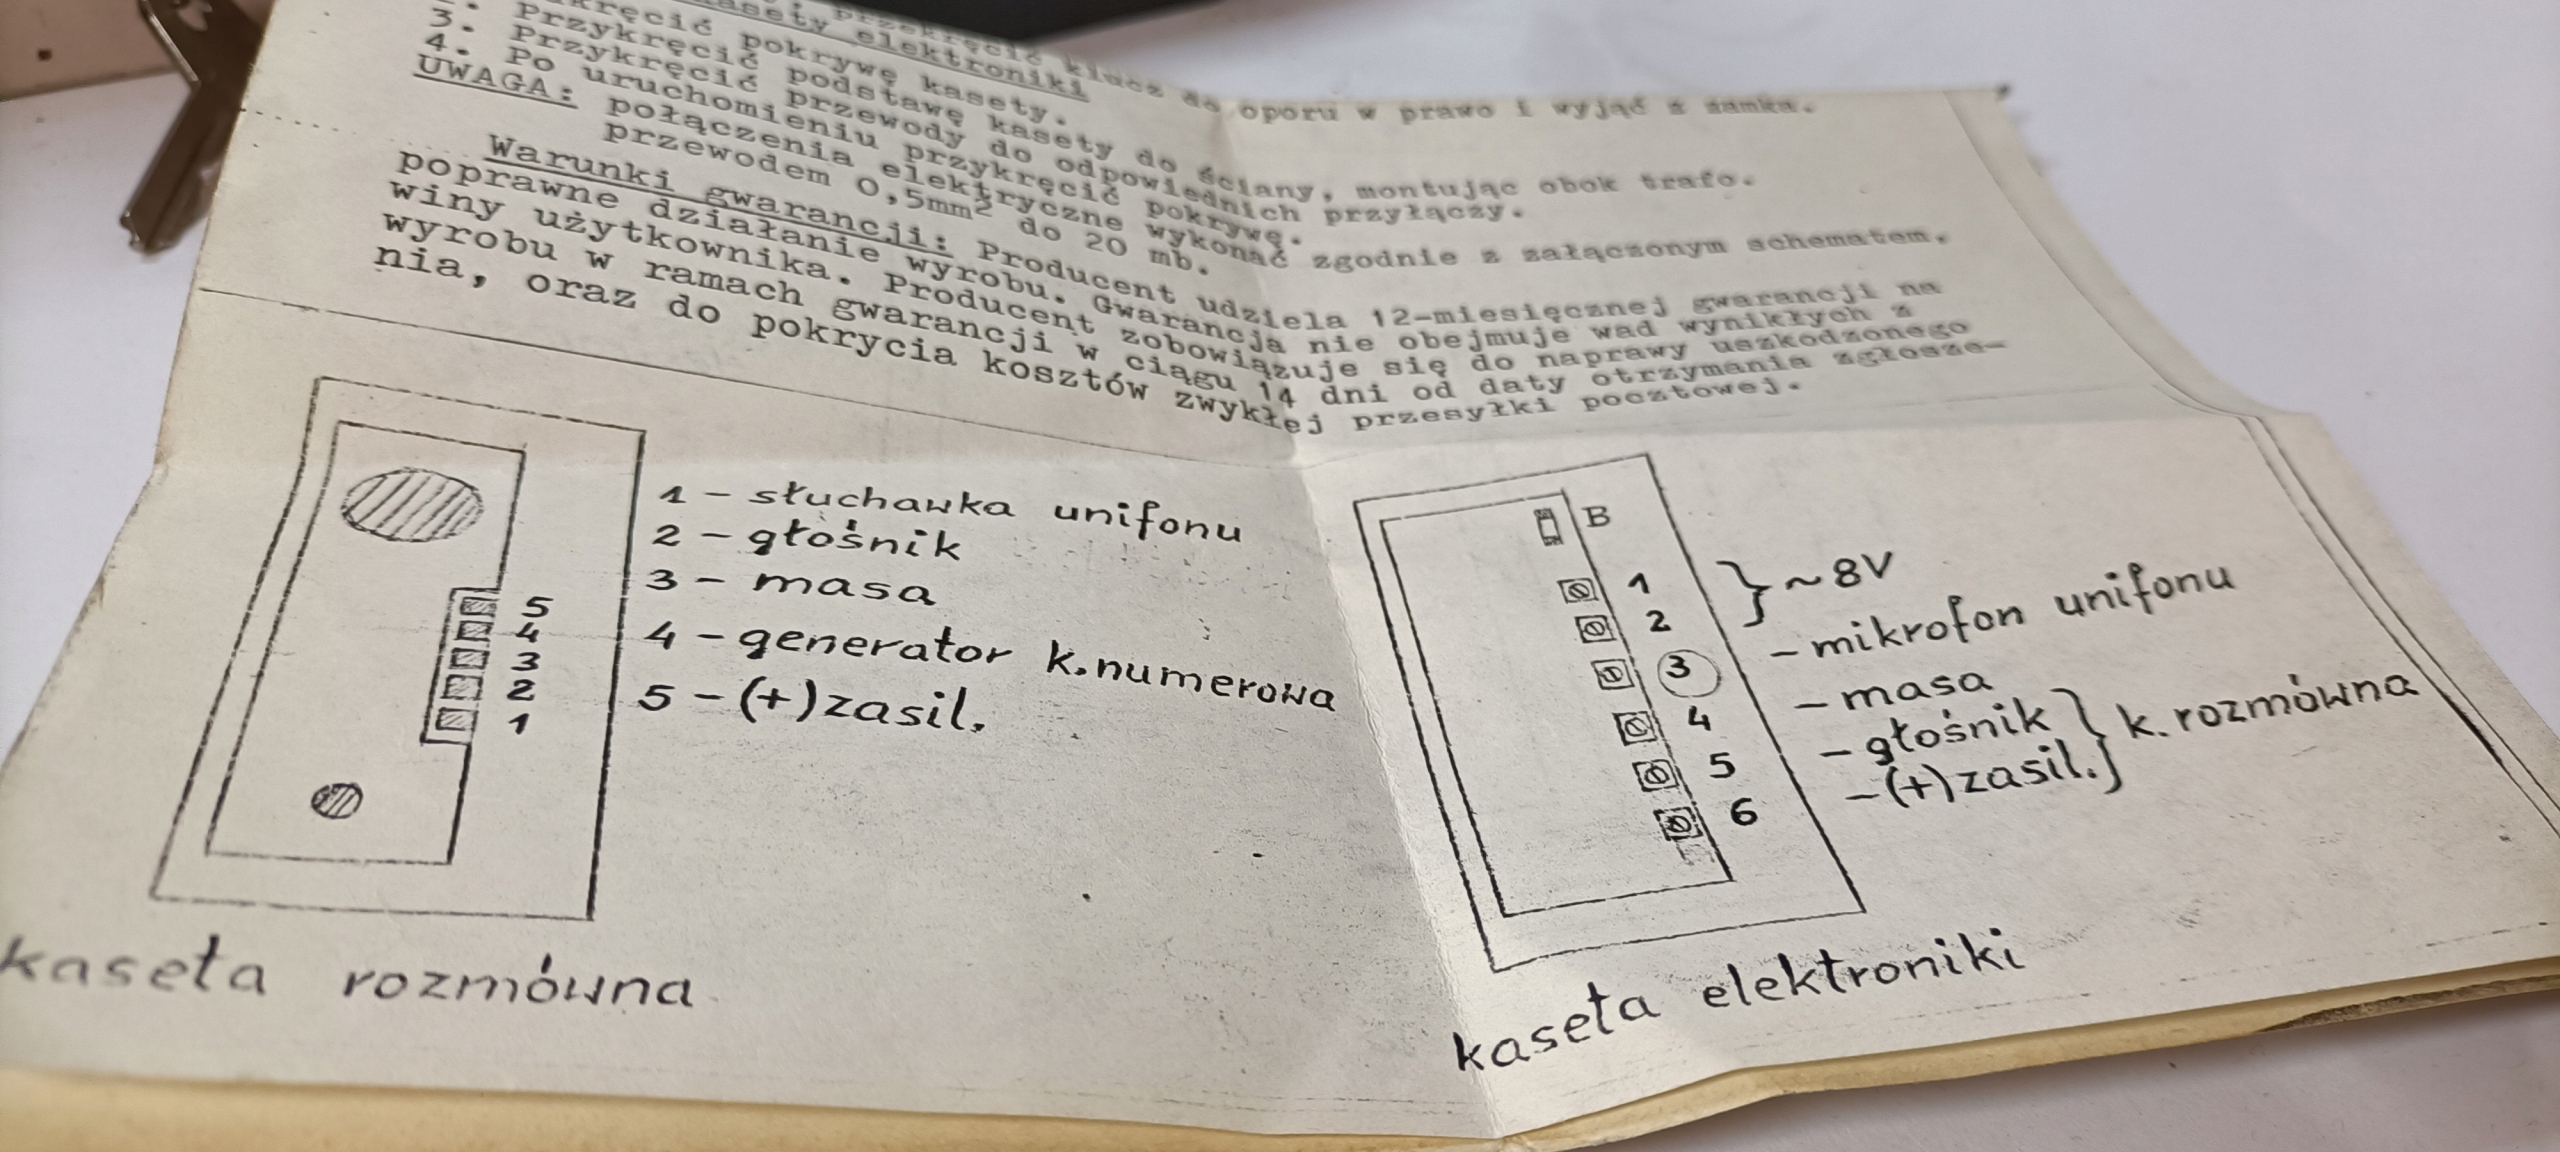 kasety elektroniki przekręcić klucz do oporu w prawo i wyjąć z zamka.
kręcić pokrywę kasety.
Przykręcić podstawę kasety do ściany, montując obok trafo.
3. Przykręcić przewody do odpowiednich przyłączy.
4. Po uruchomieniu przykręcić pokrywę.
UWAGA: połączenia elektryczne wykonać zgodnie z załączonym schematem,
przewodem 0,5mm² do 20 mb.
Warunki gwarancji: Producent udziela 12-miesięcznej gwarancji na
poprawne działanie wyrobu. Gwarancja nie obejmuje wad wynikłych z
winy użytkownika. Producent zobowiązuje się do naprawy uszkodzonego
wyrobu w ramach gwarancji w ciągu 14 dni od daty otrzymania zgłosze-
nia, oraz do pokrycia kosztów zwykłej przesyłki pocztowej.
1 - słuchawka unifonu
2 - głośnik
3 - masa
4 - generator k.numerowa
5 - (+)zasil.
5
4
3
2
1
kaseta rozmówna
B
1
2
} ~8V
3 - mikrofon unifonu
4 - masa
5 - głośnik
6 - (+)zasil.
} k. rozmówna
kaseta elektroniki